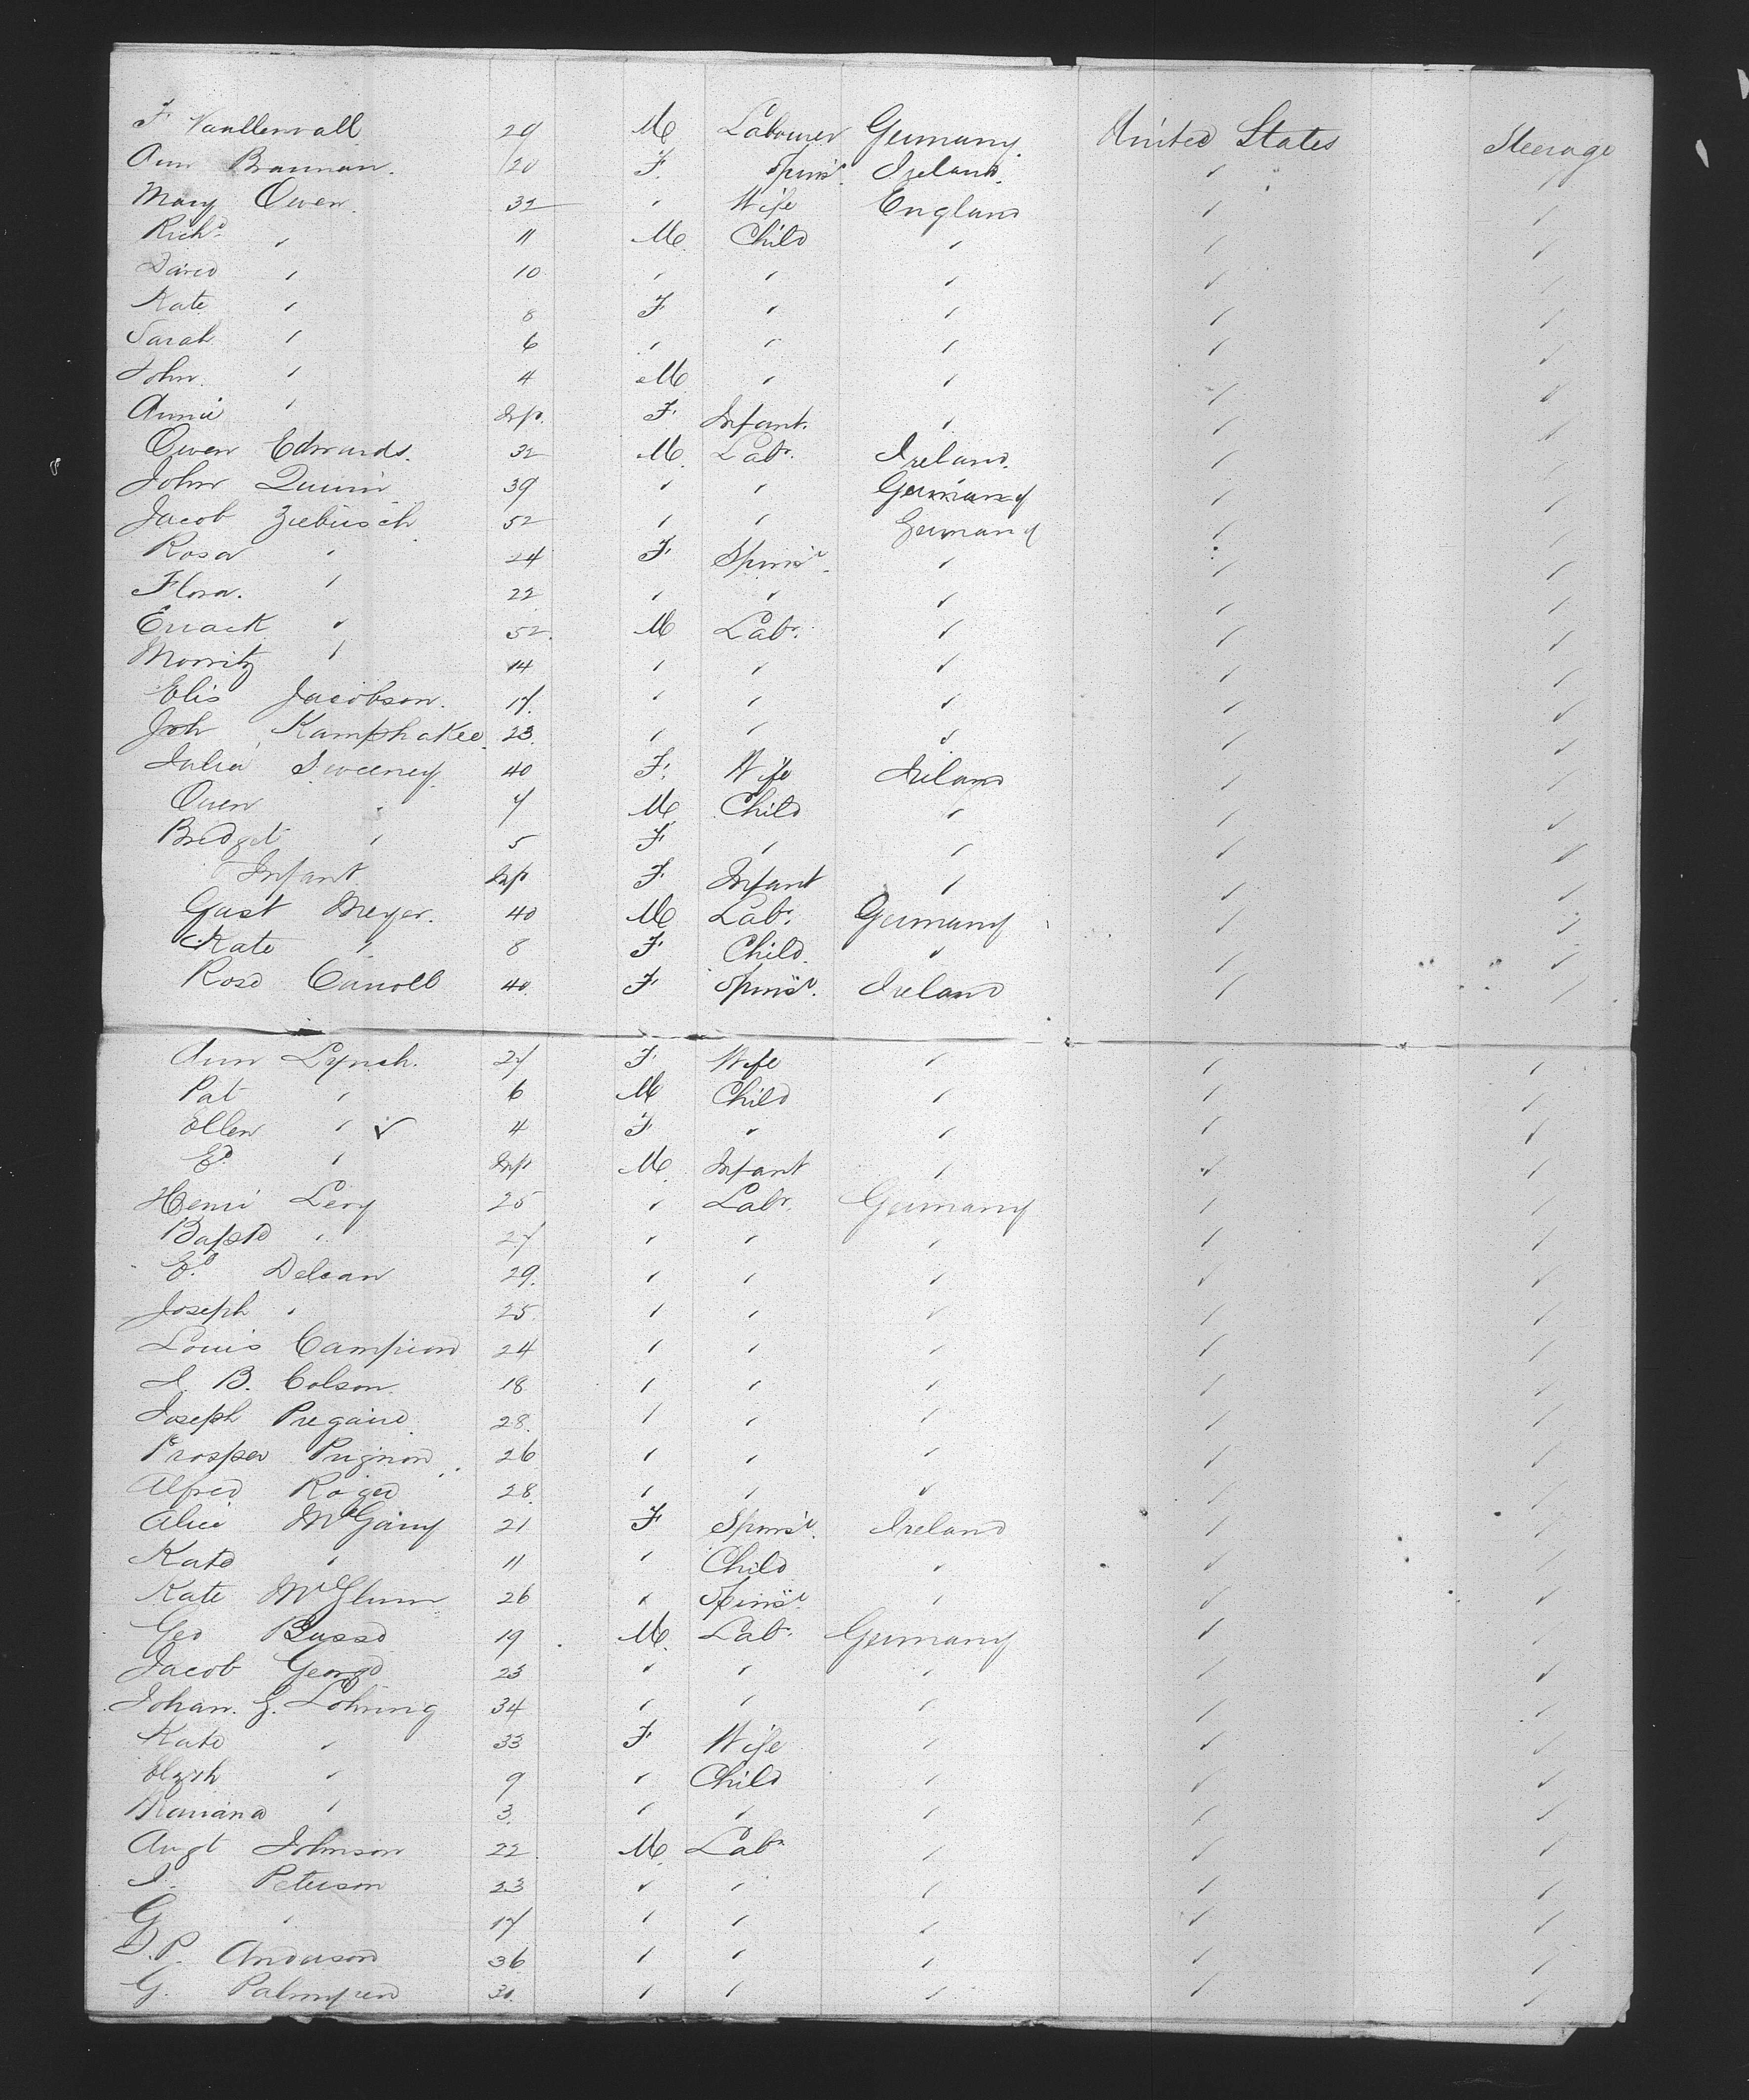 F Vaullenvall 29 M Labourer Germany United States Steerage
Ann Brannan. 20 F. Spins.r Ireland. " "
Mary Owen. 32 " Wife England " "
Rich.d " 11 M. Child " " "
David " 10 " " " " "
Kate " 8 F " " " "
Sarah " 6 " " " " "
John. " 4 M " " " "
Annie " Inft. F Infant. " " "
Owen Edwards. 32 M. Lab.r Ireland. " "
John Quinn 39 " " Germany " "
Jacob Ziebusch 52 " " Germany " "
Rosa " 24 F Spins.r " " "
Flora. " 22 " " " " "
" 52. M Lab.r " " "
Morritz " 14 " " " " "
Elis Jacobson. 17. " " " " "
Joh Kamphakee 23. " " " " "
Julia Sweeney 40 F. Wife Ireland " "
Owen " 7 M. Child " " "
Bridget " 5 F " " " "
Infant Inft F Infant " " "
Gust Meyer. 40 M Lab.r Germany " "
Kate " 8 F Child. " " "
Rose Carroll 40. F Spins.r Ireland " "
Ann Lynch. 27 F Wife " " "
Pat " 6 M Child " " "
Ellen " ✓ 4 F " " " "
E.d " Inft M. Infant " " "
Henri Levy 25 " Lab.r Germany " "
" 27 " " " " "
E.d Delcan 29. " " " " "
Joseph " 25. " " " " "
Louis Campion 24 " " " " "
J. B. Colson. 18 " " " " "
Joseph 28. " " " " "
Prosper Prignon 26 " " " " "
Alfred Roger 28. " " " " "
Alice McGarry 21 F Spins.r Ireland " "
Kate " 11 " Child " " "
Kate McGlinn 26 " Spins.r " " "
Geo Busse 19 M. Lab.r Germany " "
Jacob George 23 " " " " "
Johan. G. Lohring 34 " " " " "
Kate " 33 F Wife " " "
Elzth " 9 " Child " " "
Mariana " 3. " " " " "
Augt Johnson 22. M. Lab.r " " "
J. Peterson 23 " " " " "
G " 17 " " " " "
J. P. Anderson 36 " " " " "
G. Palmgren 30. " " " " "